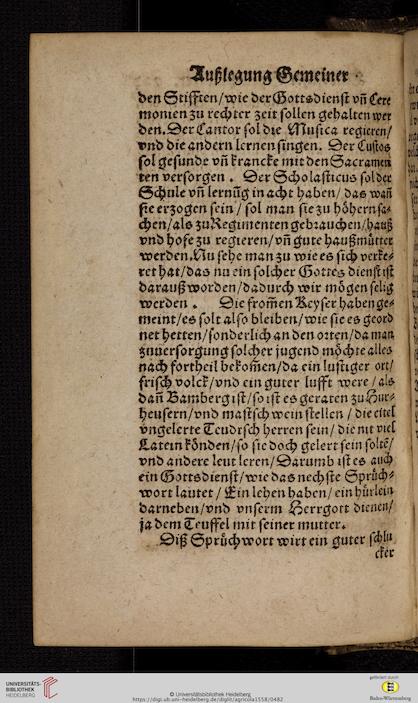 Außlegung Gemeiner
den Stifften/wie der Gottsdienst vñ Cere
monien zu rechter zeit sollen gehalten wer
den. Der Cantor sol die Musica regieren/
vnd die andern lernen singen. Der Custos
sol gesunde vñ krancke mit den Sacramen
ten versorgen. Der Scholasticus sol der
Schule vñ lernũg in acht haben/ das wañ
sie erzogen sein/ sol man sie zu höhern sa-
chen/als zu Regimenten gebrauchen/hauß
vnd hofe zu regieren/vñ gute haußmütter
werden. Nu sehe man zu wie es sich verke-
ret hat/das nu ein solcher Gottes dienst ist
darauß worden/dadurch wir mögen selig
werden. Die from̃en Keyser haben ge-
meint/es solt also bleiben/wie sie es geord
net hetten/sonderlich an den orten/da man
zuuersorgung solcher jugend möchte alles
nach fortheil bekom̃en/da ein lustiger ort/
frisch volck/vnd ein guter lufft were/als
dañ Bamberg ist/so ist es geraten zu Hur-
heusern/vnd mastschwein stellen/ die eitel
vngelerte Teudtsch herren sein/die nit viel
Latein könden/so sie doch gelert sein solte͂/
vnd andere leut leren/Darumb ist es auch
ein Gottsdienst/wie das nechste Sprüch-
wort lautet/Ein lehen haben/ein hürlein
darneben/vnd vnserm Herrgott dienen/
ja dem Teuffel mit seiner mutter.
Diß Sprüchwort wirt ein guter schlu
cker
UNIVERSITÄTS-
BIBLIOTHEK
HEIDELBERG
© Universitätsbibliothek Heidelberg
https://digi.ub.uni-heidelberg.de/diglit/agricola1558/0482
gefördert durch
Baden-Württemberg